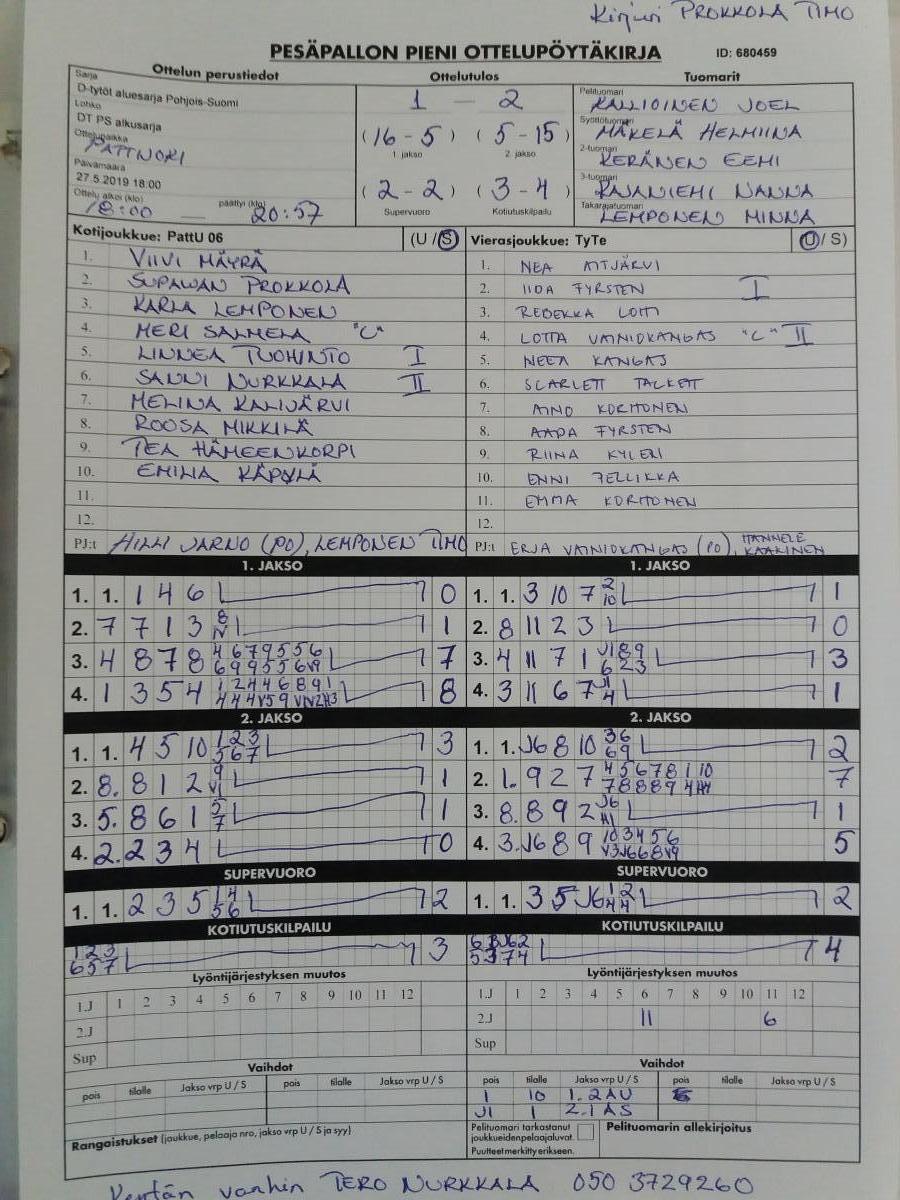 Kirjuri PROKKOLA TIMO
PESÄPALLON PIENI OTTELUPÖYTÄKIRJA ID: 680459
Ottelun perustiedot Ottelutulos Tuomarit
Sarja
D-tytöt aluesarja Pohjois-Suomi
Lohko
DT PS alkusarja
Ottelupaikka
PATTIJOKI
Päivämäärä
27.5.2019 18:00
Ottelu alkoi (klo) 18:00 päättyi (klo) 20:57
1 - 2
(16 - 5) (5 - 15)
1. jakso 2. jakso
(2 - 2) (3 - 4)
Supervuoro Kotiutuskilpailu
Pelituomari
KALLIOINEN JOEL
Syöttötuomari
MÄKELÄ HELMIINA
2-tuomari
KERÄNEN EEMI
3-tuomari
RAJANIEMI NANNA
Takarajatuomari
LEMPONEN MINNA
Kotijoukkue: PattU 06 (U / S)
1. VIIVI MÄYRÄ
2. SUPAWAN PROKKOLA
3. KARLA LEMPONEN
4. MERI SALMELA "C"
5. LINNEA TUOHINTO I
6. SANNI NURKKALA II
7. MELINA KALIJÄRVI
8. ROOSA MIKKILÄ
9. TEA HÄMEENKORPI
10. EMILIA KÄPYLÄ
11.
12.
PJ:t HILLI JARNO (PO), LEMPONEN TIMO
Vierasjoukkue: TyTe (U / S)
1. NEA AITJÄRVI
2. IIDA FYRSTEN I
3. REBEKKA LOHI
4. LOTTA VAINIOKANGAS "C" II
5. NEEA KANGAS
6. SCARLETT TACKETT
7. AINO KORHONEN
8. AADA FYRSTEN
9. RIINA KYLERI
10. ENNI PELLIKKA
11. EMMA KORHONEN
12.
PJ:t ERJA VAINIOKANGAS (PO), HANNELE KAAKINEN
1. JAKSO 1. JAKSO
1. 1. 1 4 6 0
2. 7 7 1 3 8 1
3. 4 8 7 8 7
4. 1 3 5 4 8
1. 1. 3 10 7 2 10 1
2. 8 11 2 3 0
3. 4 11 7 1 3
4. 3 11 6 7 1
2. JAKSO 2. JAKSO
1. 1. 4 5 10 1 2 3 5 6 7 3
2. 8. 8 1 2 1
3. 5. 8 6 1 5 7 1
4. 2. 2 3 4 0
1. 1. J6 8 10 3 6 6 9 2
2. 1. 9 2 7 4 5 6 7 8 1 10 7
3. 8. 8 9 2 J6 1
4. 3. J6 8 9 10 3 4 5 6 5
SUPERVUORO SUPERVUORO
1. 1. 2 3 5 1 4 5 6 2
1. 1. 3 5 J6 1 2 4 4 2
KOTIUTUSKILPAILU KOTIUTUSKILPAILU
1 2 3 6 5 7 3
4
Lyöntijärjestyksen muutos Lyöntijärjestyksen muutos
1.J 1 2 3 4 5 6 7 8 9 10 11 12
2.J
Sup
1.J 1 2 3 4 5 6 7 8 9 10 11 12
2.J 11 6
Sup
Vaihdot Vaihdot
pois tilalle Jakso vrp U / S pois tilalle Jakso vrp U / S
pois tilalle Jakso vrp U / S pois tilalle Jakso vrp U / S
1 10 1. 2AU
J1 1 2. 1AS
Rangaistukset (joukkue, pelaaja nro, jakso vrp U / S ja syy)
Pelituomari tarkastanut
joukkueiden pelaajaluvat.
Puutteet merkitty erikseen.
Pelituomarin allekirjoitus
Kentän vanhin TERO NURKKALA 050 3729260